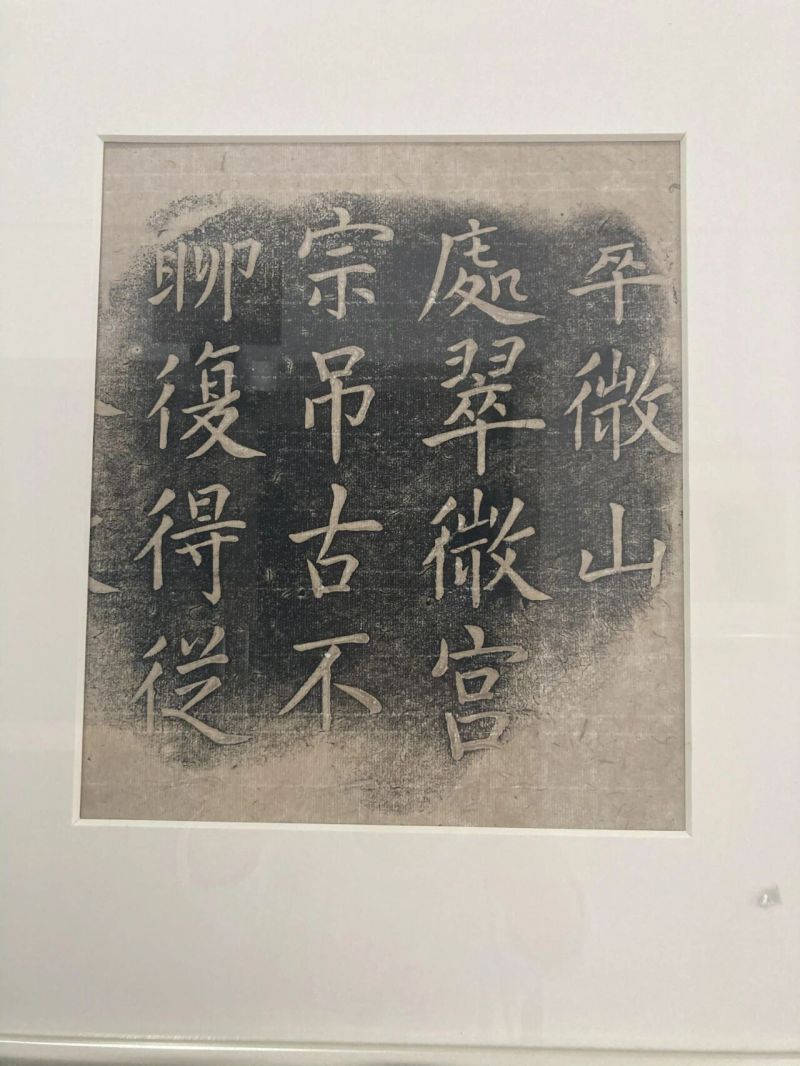 卒微山
處翠微宫
宗吊古不
聊復得従